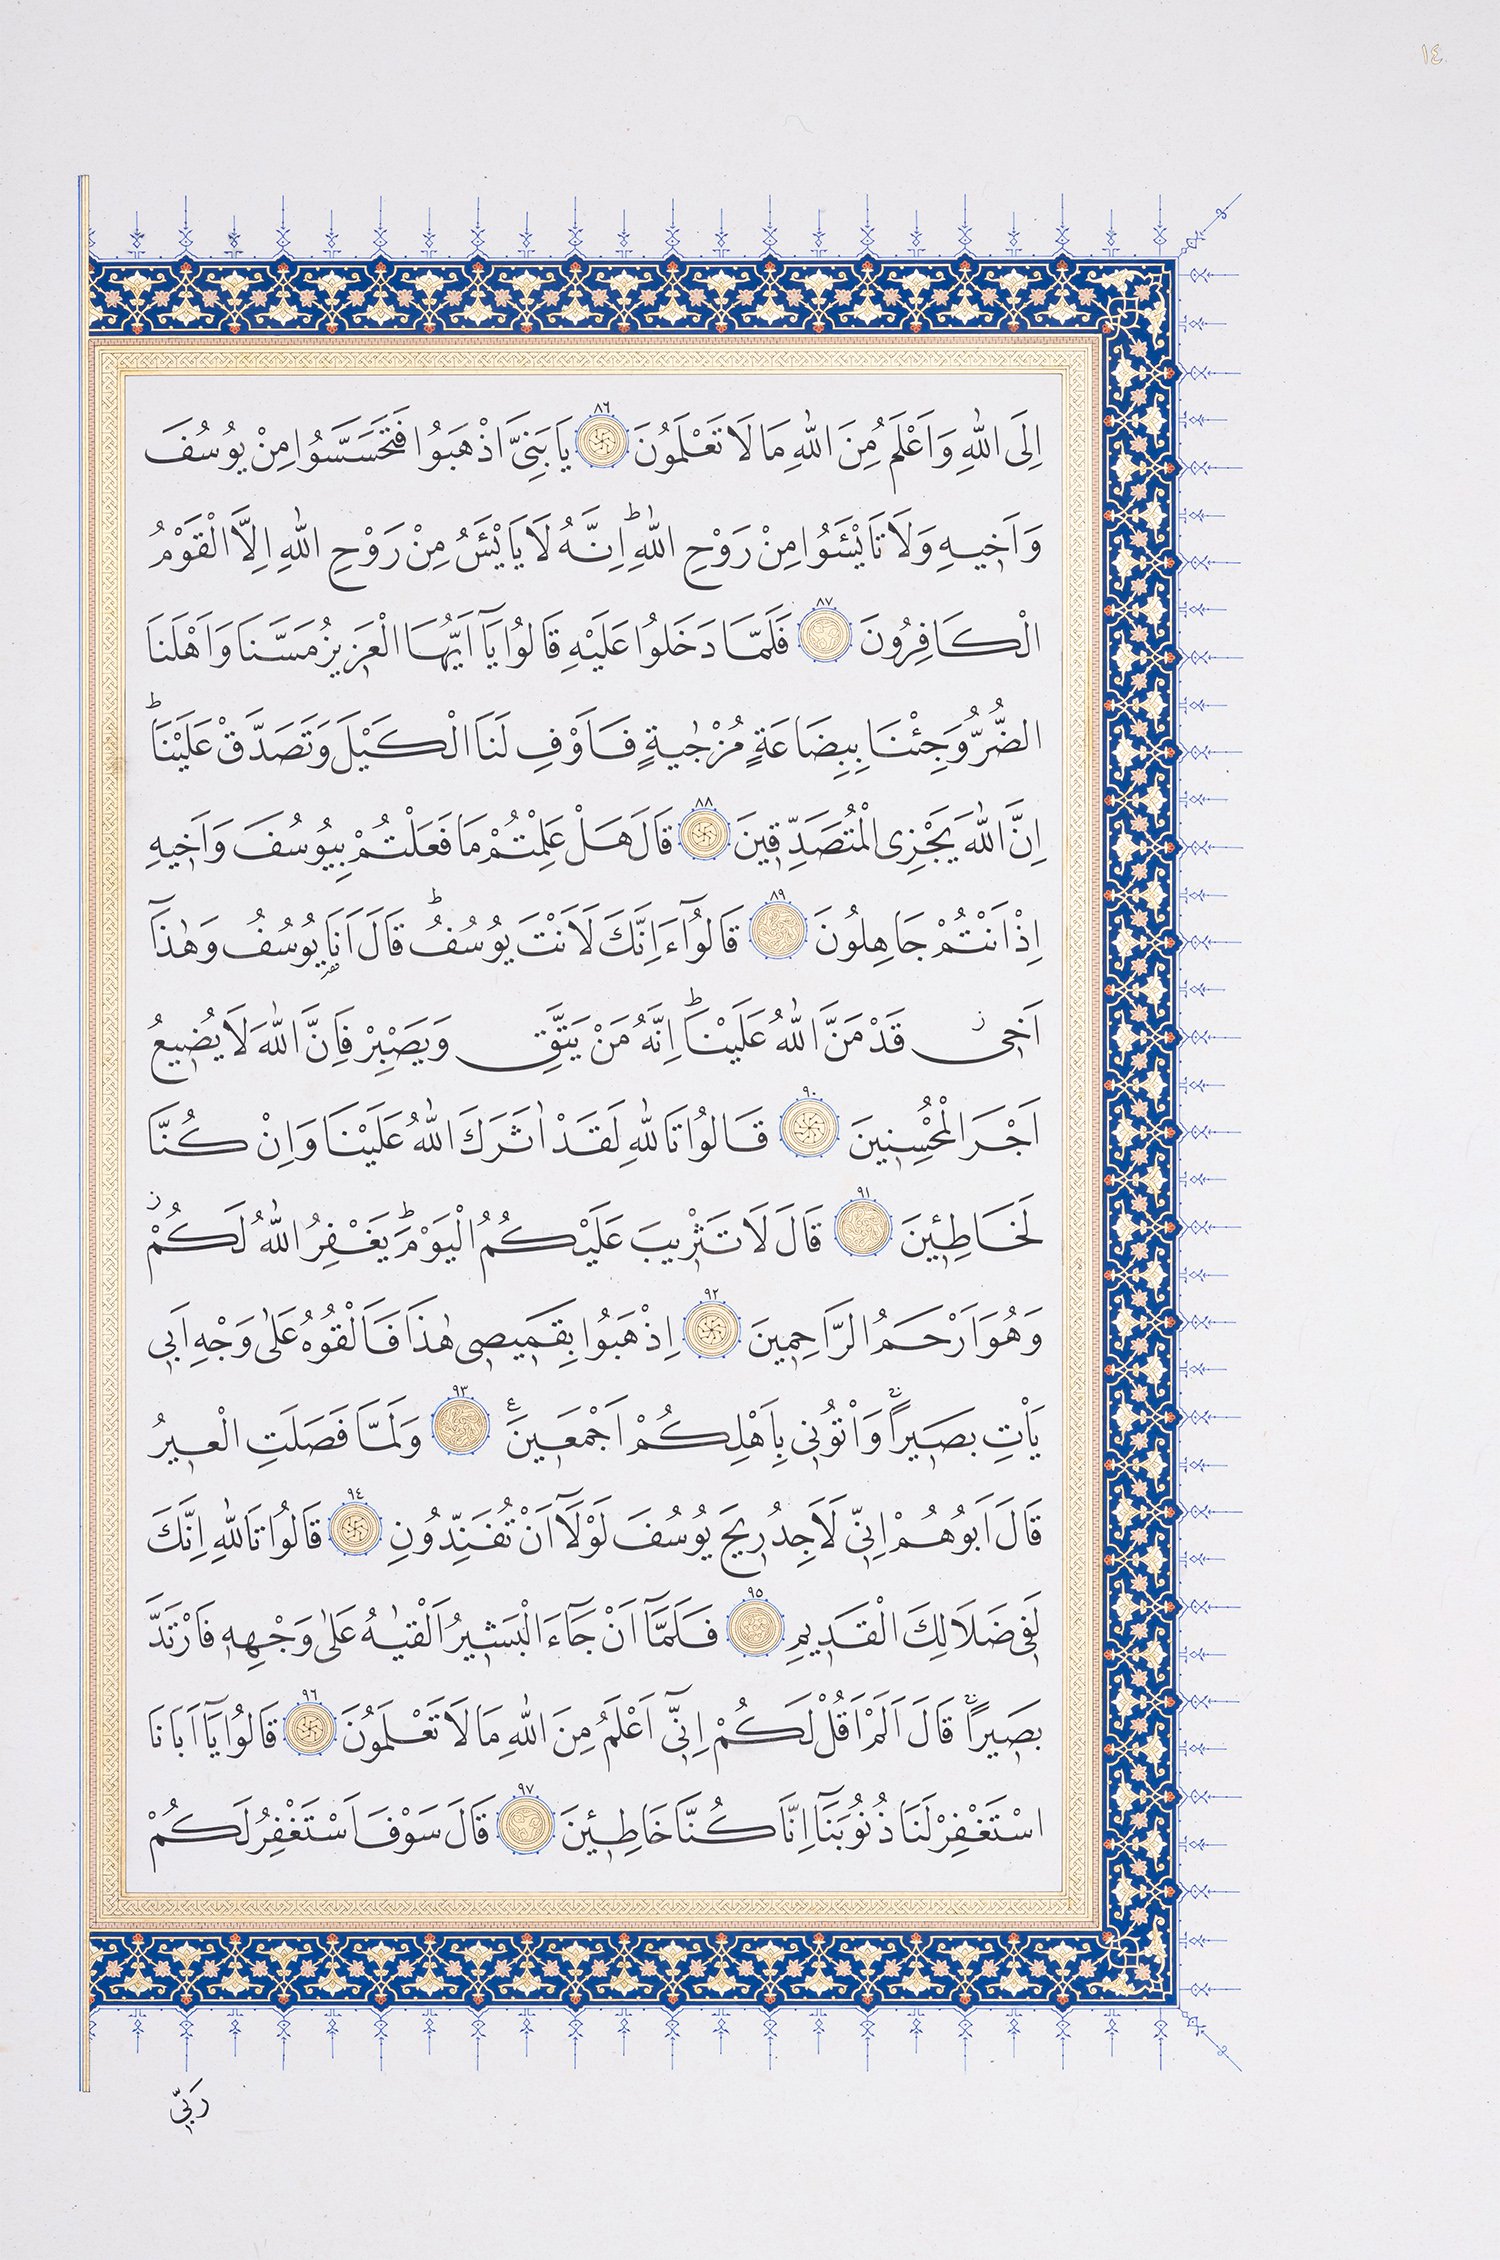 ١٤
اِلَى اللّٰهِ وَاَعْلَمُ مِنَ اللّٰهِ مَا لَا تَعْلَمُونَ ٨٦ يَا بَنِيَّ اذْهَبُوا فَتَحَسَّسُوا مِنْ يُوسُفَ
وَاَخٖيهِ وَلَا تَايْـَٔسُوا مِنْ رَوْحِ اللّٰهِؕ اِنَّهُ لَا يَايْـَٔسُ مِنْ رَوْحِ اللّٰهِ اِلَّا الْقَوْمُ
الْكَافِرُونَ ٨٧ فَلَمَّا دَخَلُوا عَلَيْهِ قَالُوا يَٓا اَيُّهَا الْعَزٖيزُ مَسَّنَا وَاَهْلَنَا
الضُّرُّ وَجِئْنَا بِبِضَاعَةٍ مُزْجٰيةٍ فَاَوْفِ لَنَا الْكَيْلَ وَتَصَدَّقْ عَلَيْنَاؕ
اِنَّ اللّٰهَ يَجْزِى الْمُتَصَدِّقٖينَ ٨٨ قَالَ هَلْ عَلِمْتُمْ مَا فَعَلْتُمْ بِيُوسُفَ وَاَخٖيهِ
اِذْ اَنْتُمْ جَاهِلُونَ ٨٩ قَالُٓوا ءَاِنَّكَ لَاَنْتَ يُوسُفُؕ قَالَ اَنَا يُوسُفُ وَهٰذَٓا
اَخٖىؗ قَدْ مَنَّ اللّٰهُ عَلَيْنَاؕ اِنَّهُ مَنْ يَتَّقِ وَيَصْبِرْ فَاِنَّ اللّٰهَ لَا يُضٖيعُ
اَجْرَ الْمُحْسِنٖينَ ٩٠ قَالُوا تَاللّٰهِ لَقَدْ اٰثَرَكَ اللّٰهُ عَلَيْنَا وَاِنْ كُنَّا
لَخَاطِـٖٔينَ ٩١ قَالَ لَا تَثْرٖيبَ عَلَيْكُمُ الْيَوْمَؕ يَغْفِرُ اللّٰهُ لَكُمْؗ
وَهُوَ اَرْحَمُ الرَّاحِمٖينَ ٩٢ اِذْهَبُوا بِقَمٖيصٖى هٰذَا فَاَلْقُوهُ عَلٰى وَجْهِ اَبٖى
يَاْتِ بَصٖيرًاۚ وَاْتُونٖى بِاَهْلِكُمْ اَجْمَعٖينَࣖ ٩٣ وَلَمَّا فَصَلَتِ الْعٖيرُ
قَالَ اَبُوهُمْ اِنّٖى لَاَجِدُ رٖيحَ يُوسُفَ لَوْلَٓا اَنْ تُفَنِّدُونِ ٩٤ قَالُوا تَاللّٰهِ اِنَّكَ
لَفٖى ضَلَالِكَ الْقَدٖيمِ ٩٥ فَلَمَّٓا اَنْ جَٓاءَ الْبَشٖيرُ اَلْقٰيهُ عَلٰى وَجْهِهٖ فَارْتَدَّ
بَصٖيرًاۚ قَالَ اَلَمْ اَقُلْ لَكُمْ اِنّٖٓى اَعْلَمُ مِنَ اللّٰهِ مَا لَا تَعْلَمُونَ ٩٦ قَالُوا يَٓا اَبَانَا
اسْتَغْفِرْ لَنَا ذُنُوبَنَٓا اِنَّا كُنَّا خَاطِـٖٔينَ ٩٧ قَالَ سَوْفَ اَسْتَغْفِرُ لَكُمْ
رَبّٖى